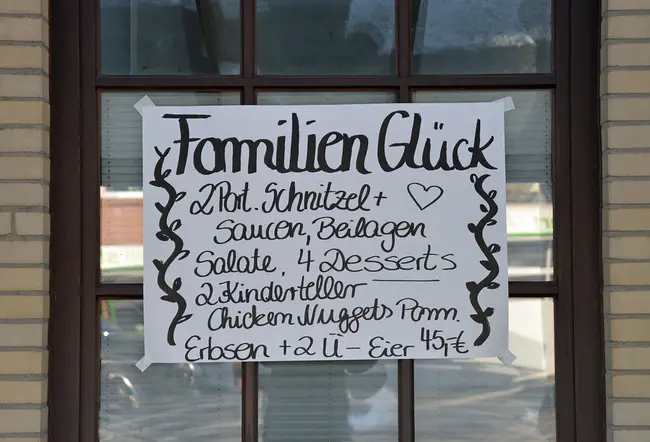 Familien Glück
2 Port. Schnitzel +
Saucen, Beilagen
Salate, 4 Desserts
2 Kinderteller
Chicken Nuggets Pomm.
Erbsen + 2 Ü - Eier 45,-€